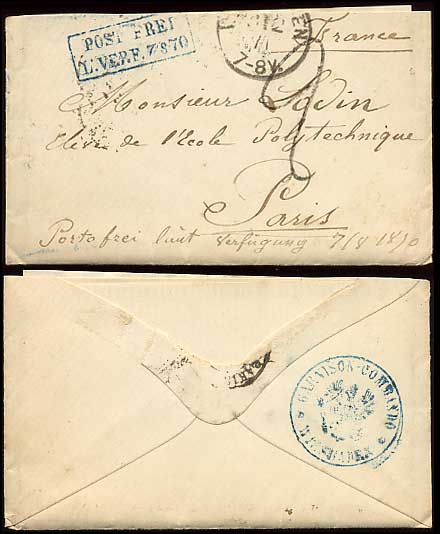 POST FREI
L.VERF. 7/8 70
7-8V
France
Monsieur Godin
Elève de l'Ecole Polytechnique
Paris
Portofrei laut Verfügung 7/8 1870
GARNISON-COMMANDO
WIESBADEN